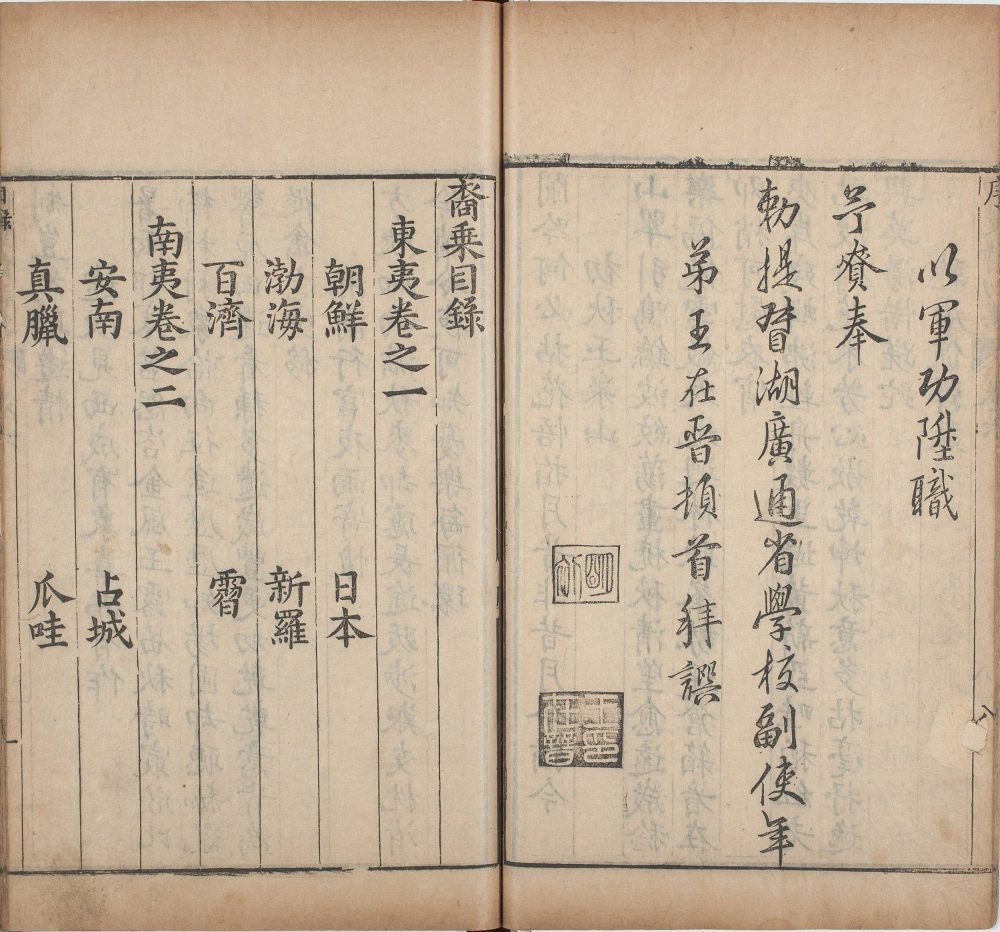 序
以軍功陞職
予賚奉
勅提督湖廣通省學校副使年
弟王在晉頓首拜譔
裔乗目錄
東夷卷之一
朝鮮 日本
渤海 新羅
百濟 霫
南夷卷之二
安南 占城
真臘 瓜哇
目錄
一